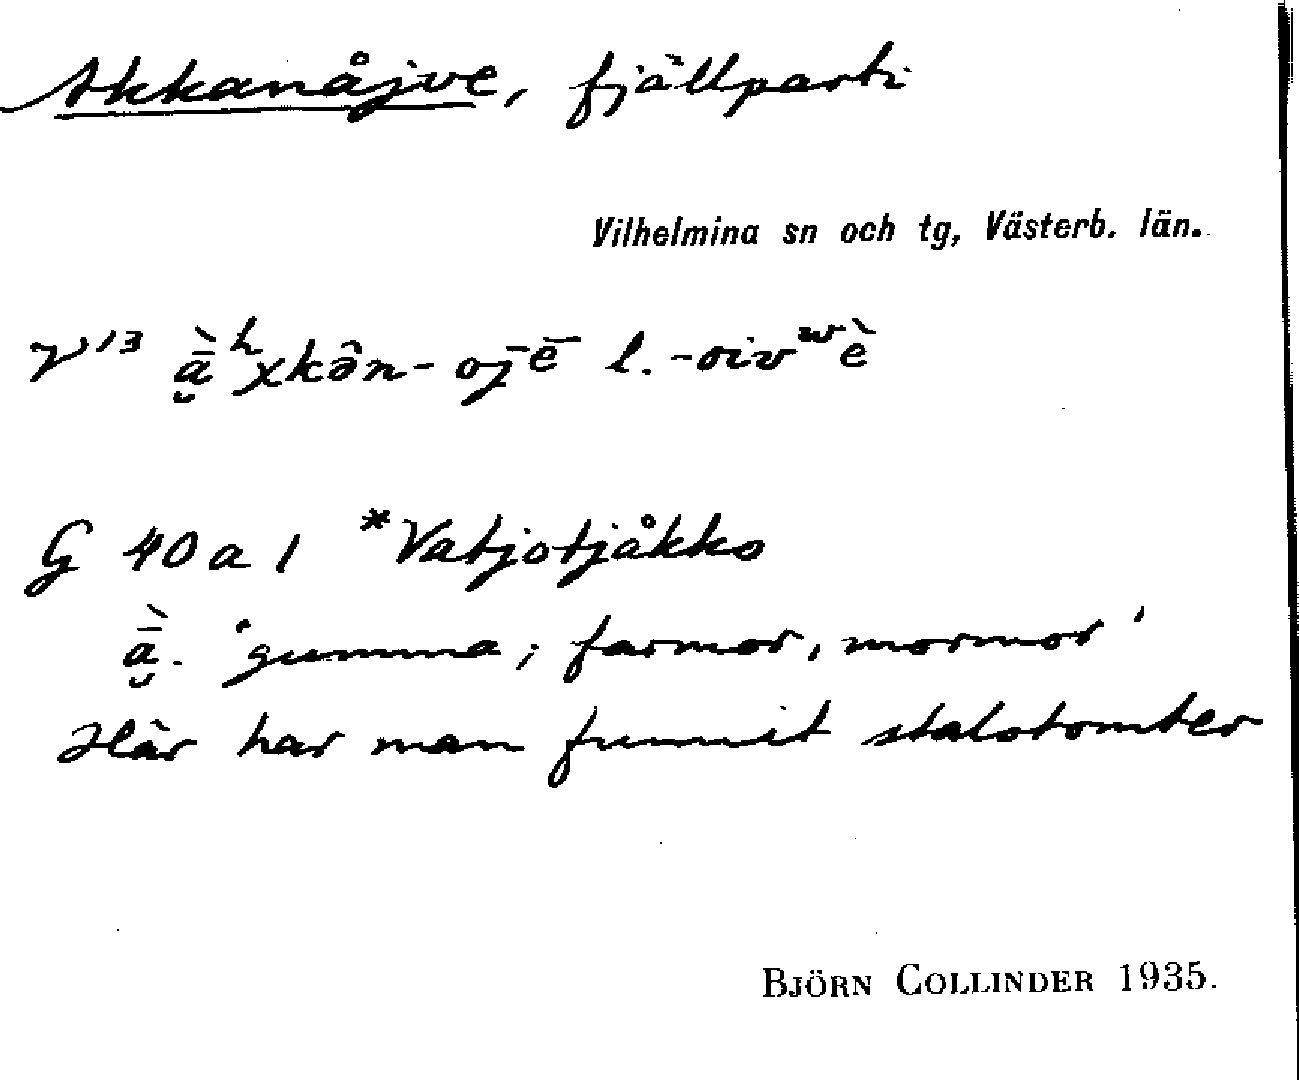 Akkanåjve, fjällparti
Vilhelmina sn och tg, Västerb. län.
V13 ā̮̀ʰχkə̑n- oj̄ē l. -oivʷè
G 40 a 1 *Vatjotjåkko
ā̮̀. 'gumma; farmor, mormor'
Här har man funnit stalotomter
BJÖRN COLLINDER 1935.